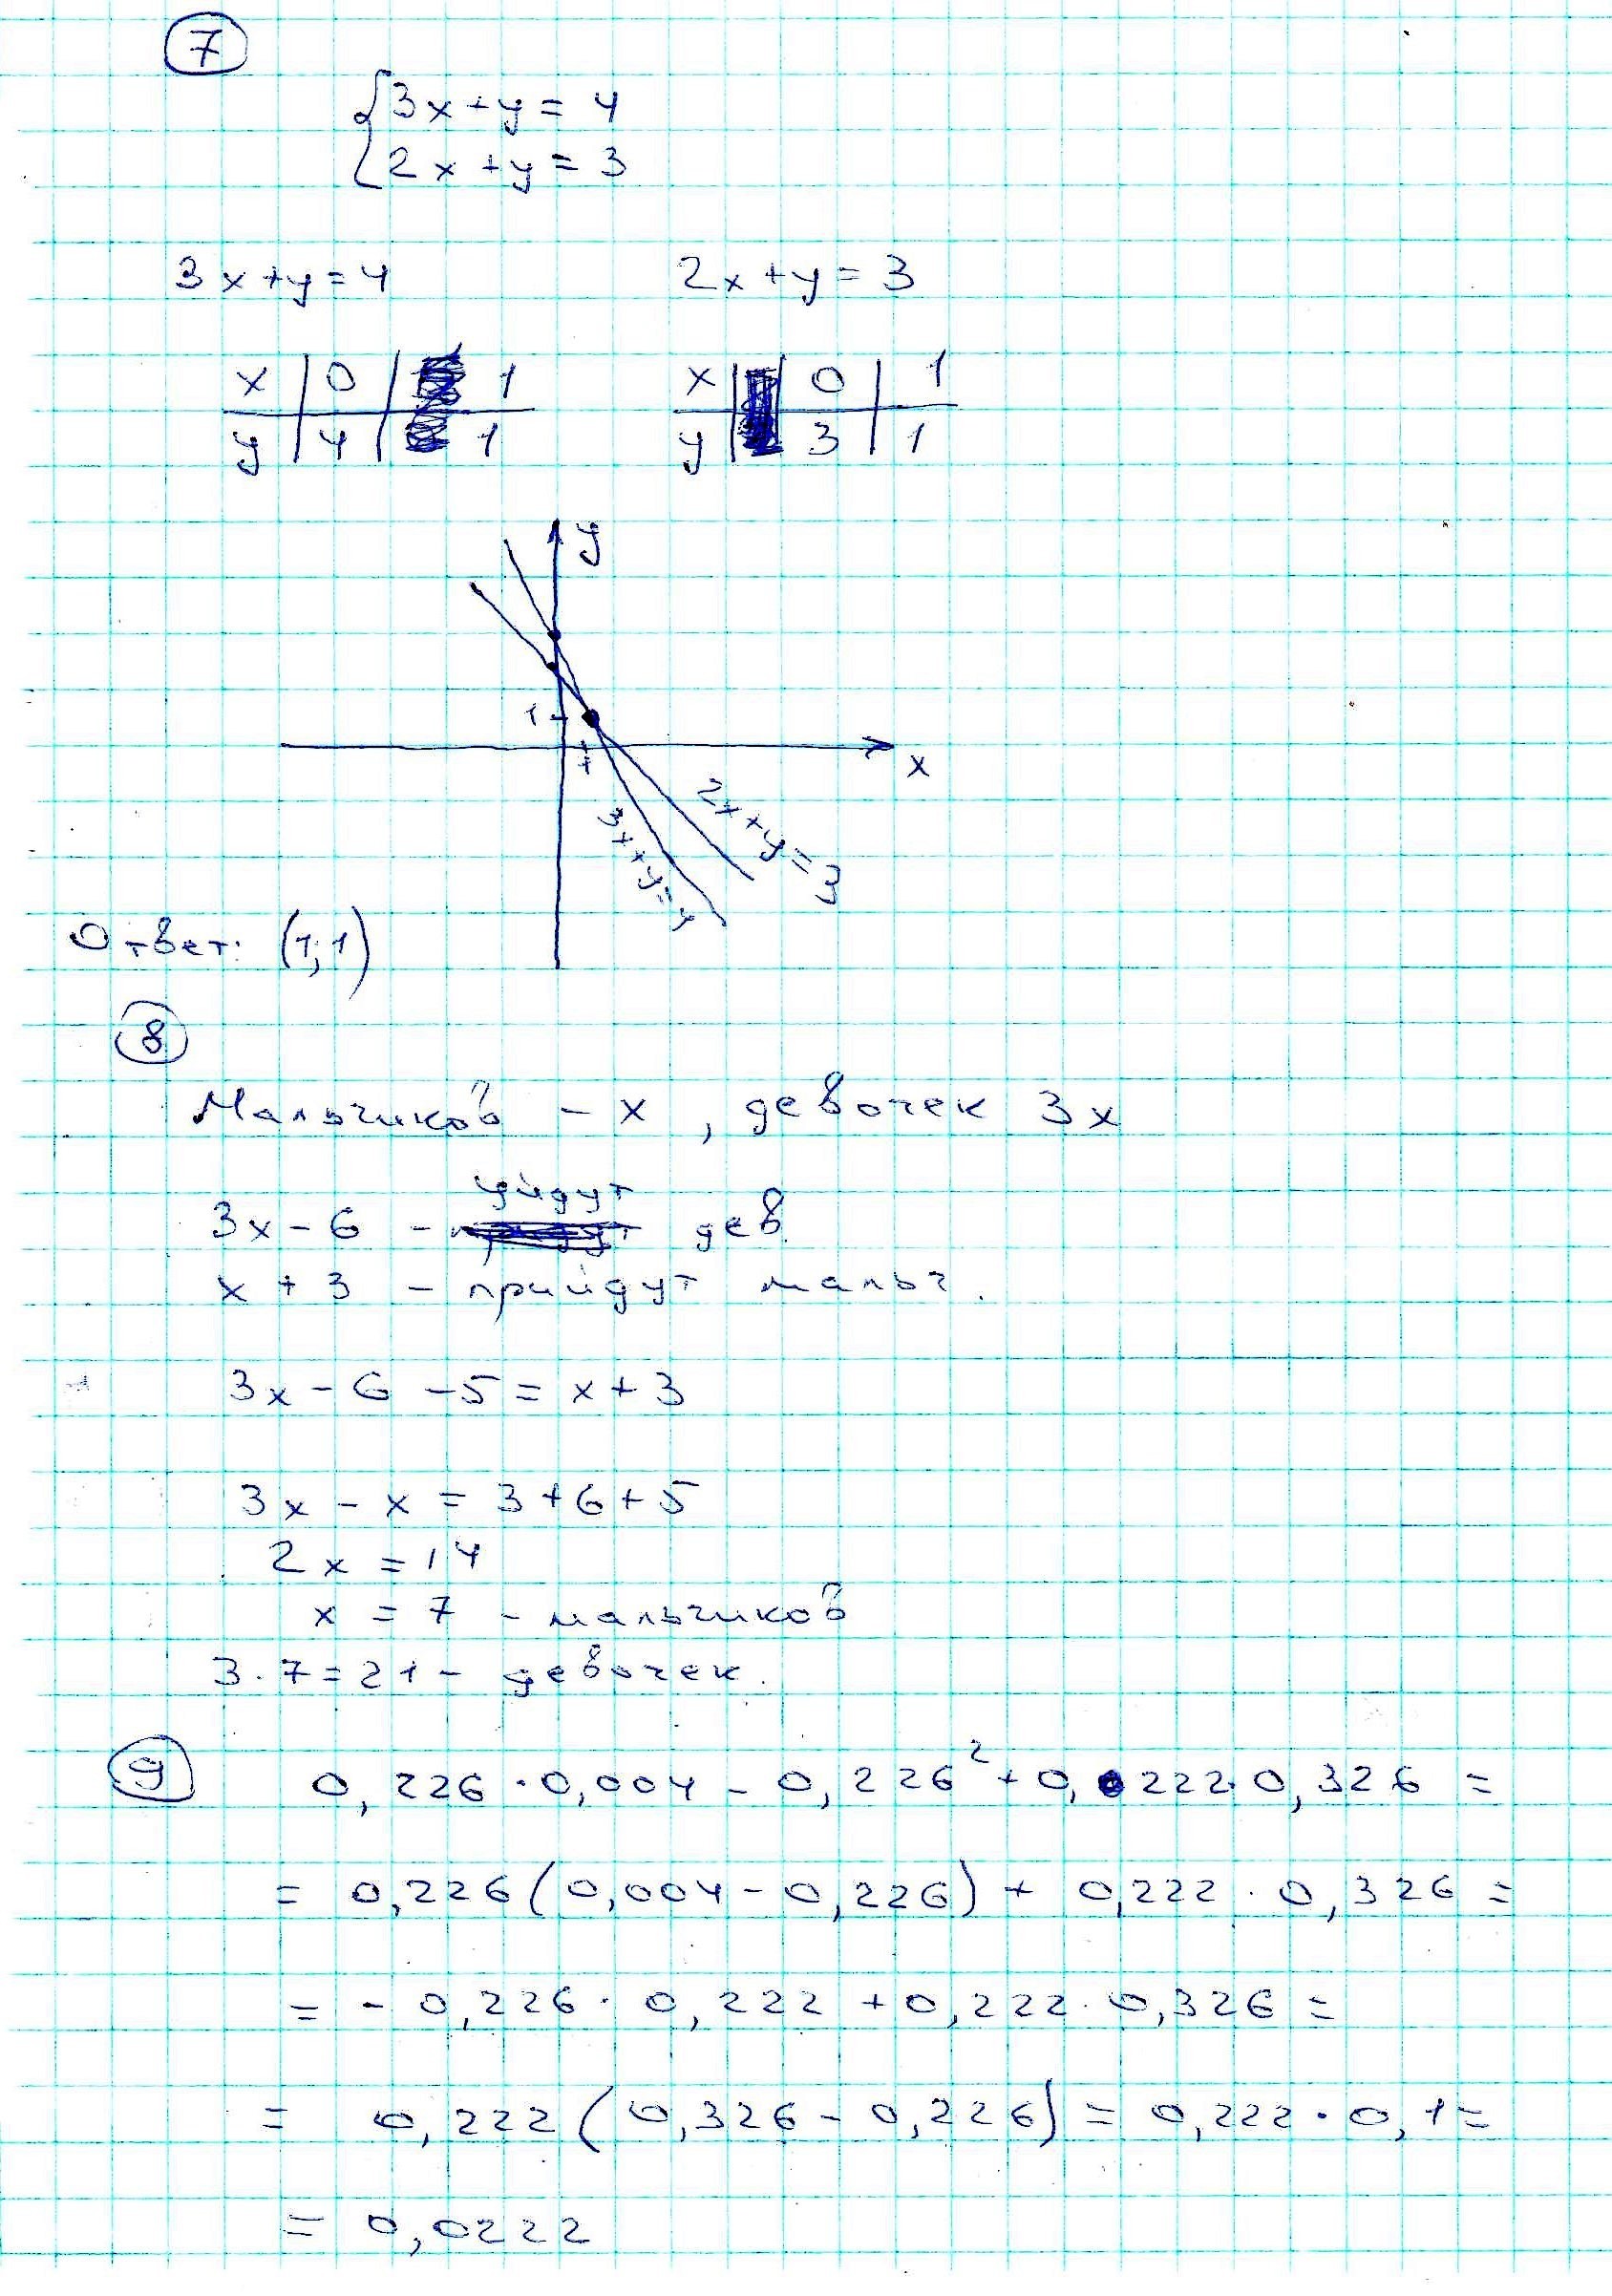 7
3x+y=4
2x+y=3
3x+y=4
2x+y=3
x 0 1
y 4 1
x 0 1
y 3 1
y
1
1
x
2x+y=3
3x+y=4
Ответ: (1;1)
8
Мальчиков - x, девочек 3x
уйдут
3x-6 - дев.
x+3 - прийдут мальч.
3x-6-5=x+3
3x-x=3+6+5
2x=14
x=7 - мальчиков
3·7=21- девочек.
9
0,226·0,004-0,226²+0,222·0,326=
=0,226(0,004-0,226)+0,222·0,326=
=-0,226·0,222+0,222·0,326=
=0,222(0,326-0,226)=0,222·0,1=
=0,0222